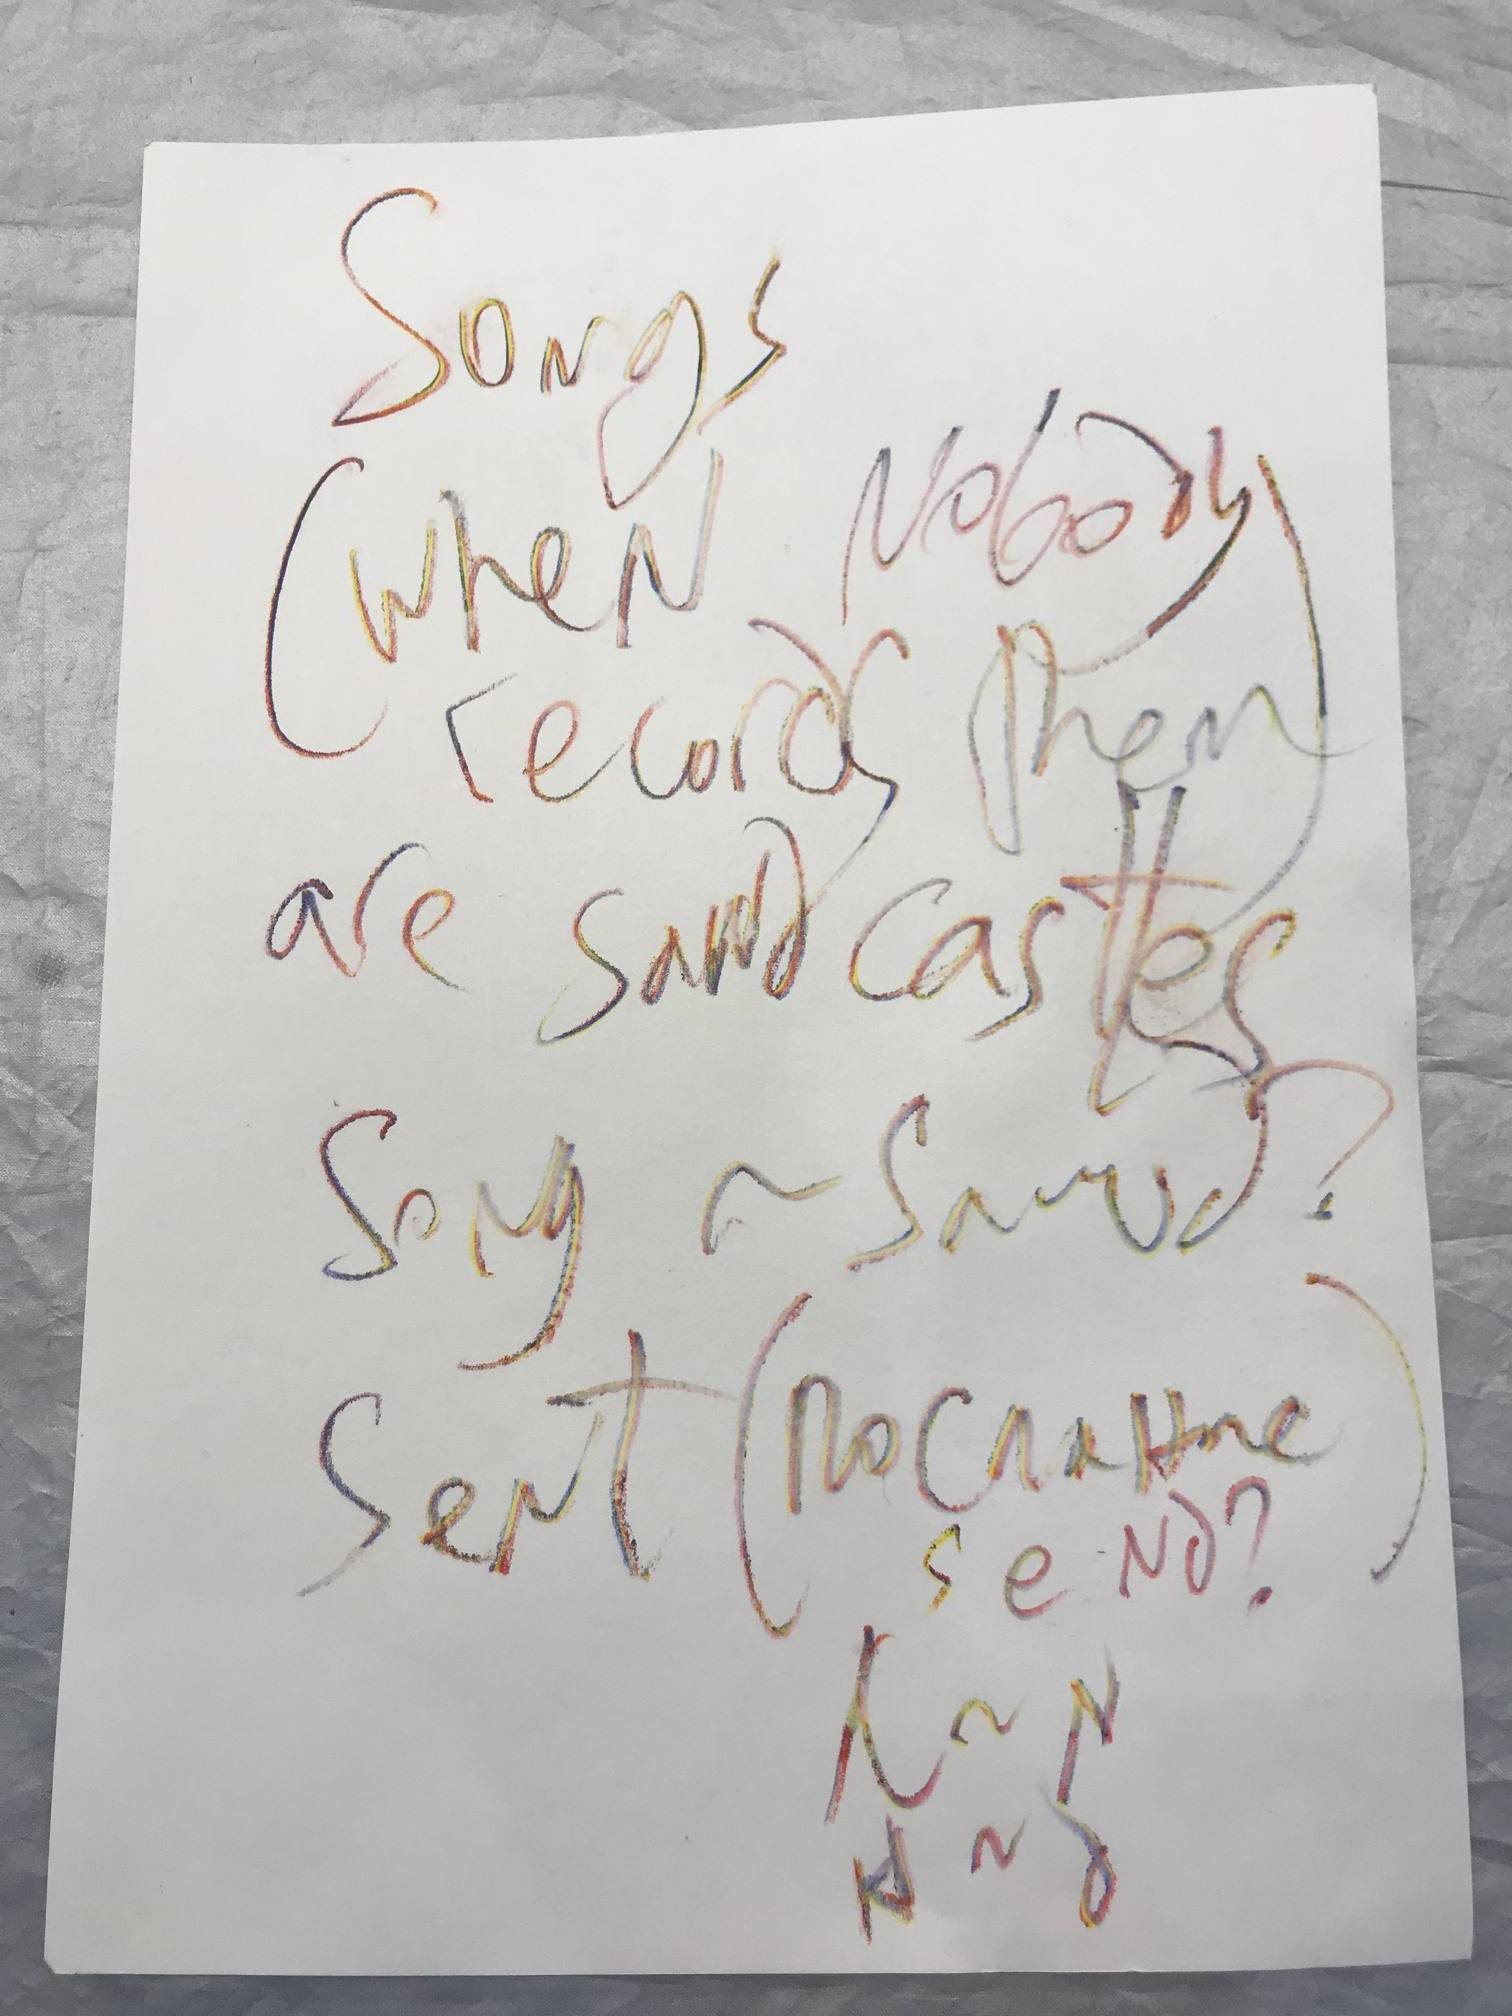 Songs
(when Nobody
records them)
are sandcastles
Song ~ Sand?
Sent (послание
send?)
N ~ N
N ~ g